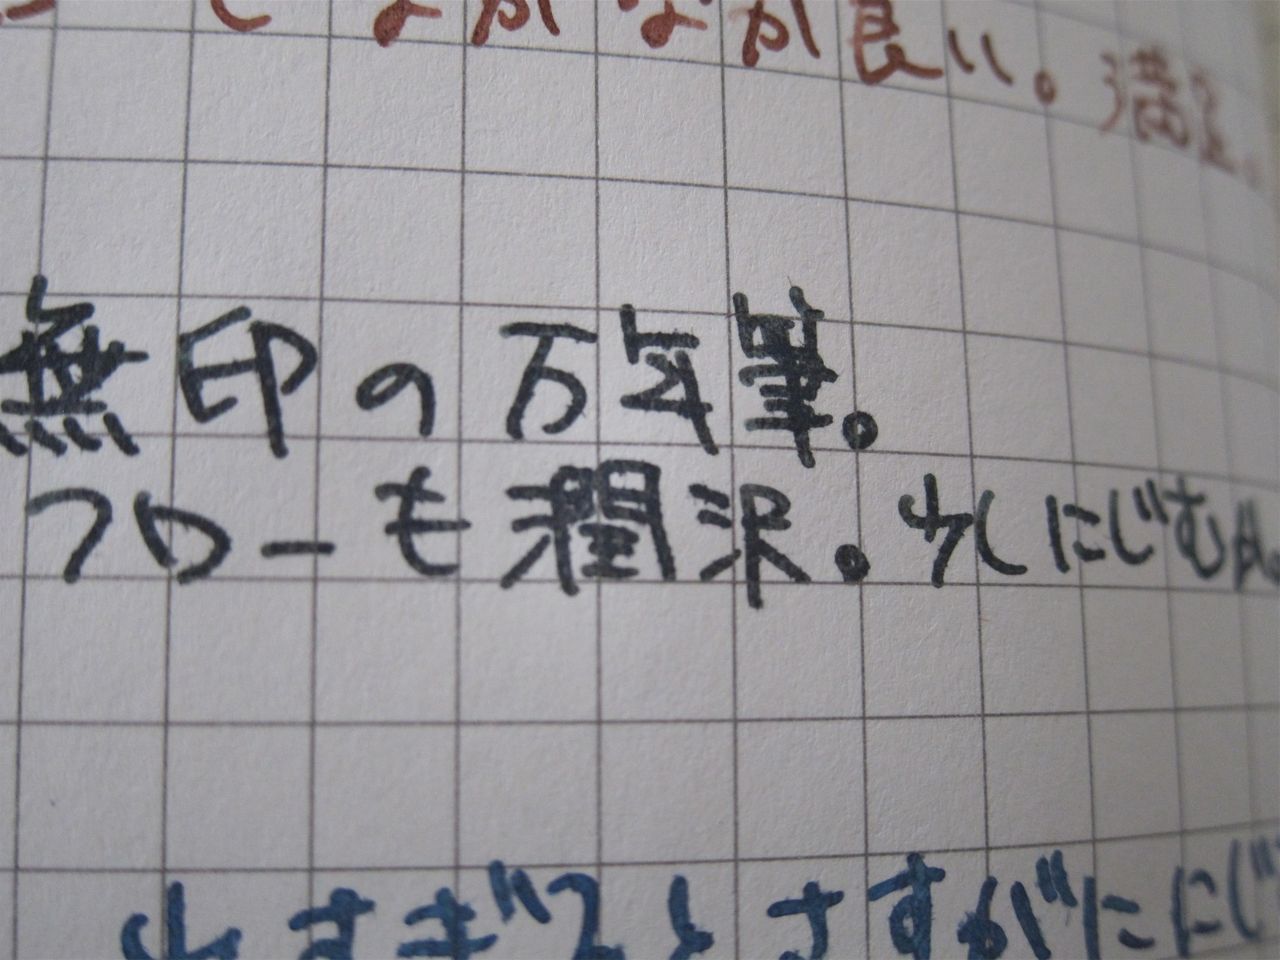 なかなか良い。満足。
無印の万年筆。
フローも潤沢。少しにじむが。
出すぎてさすがににじ